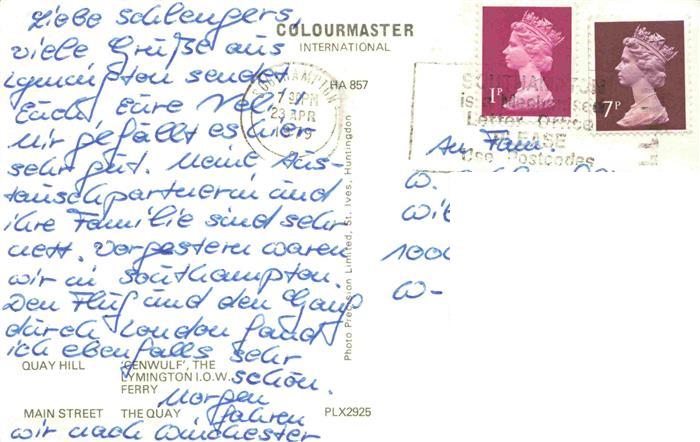 Liebe Schlengers,
viele Grüße aus
Lymington sendet
Euch Eure Neli.
Mir gefällt es hier
sehr gut. Meine Aus-
tauschpartnerin und
ihre Familie sind sehr
nett. Vorgestern waren
wir in Southampton.
Den Flug und den Gang
durch London fand
ich ebenfalls sehr
schön.
Morgen
fahren
wir nach Winchester
COLOURMASTER
INTERNATIONAL
HA 857
SOUTHAMPTON
7 30PM
23 APR
1979
1P
7P
SOUTHAMPTON
is a Mechanised
Letter Office
PLEASE
Use Postcodes
An Fam.
W.
Wi
1000
W-
Photo Precision Limited, St. Ives, Huntingdon
QUAY HILL
'CENWULF', THE
LYMINGTON I.O.W.
FERRY
MAIN STREET
THE QUAY
PLX2925